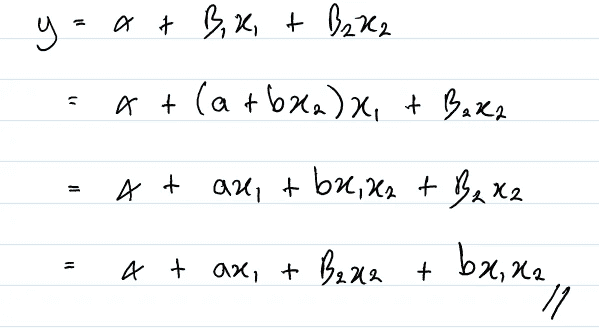 y = α + β₁x₁ + β₂x₂
= α + (a + bx₂)x₁ + β₂x₂
= α + ax₁ + bx₁x₂ + β₂x₂
= α + ax₁ + β₂x₂ + bx₁x₂ //